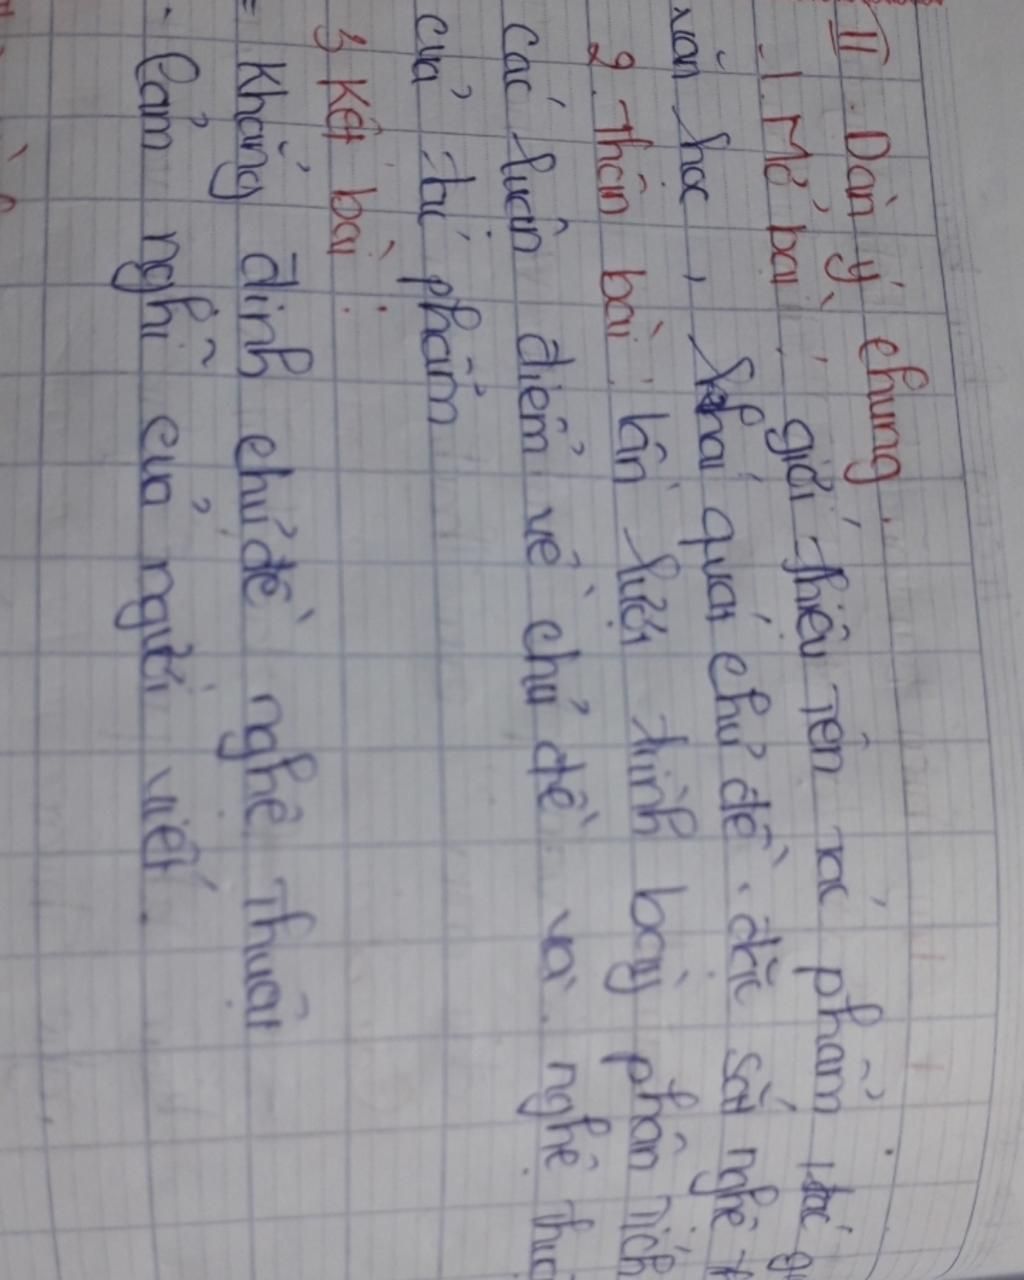 II. Dàn ý chung.
1. Mở bài: giới thiệu tên tác phẩm, tác
văn học, khái quát chủ đề, đặc sắc nghệ
2. Thân bài: lần lượt trình bày phân tích
các luận điểm về chủ đề và nghệ
của tác phẩm
3 Kết bài:
= Khẳng định chủ đề nghệ thuật
- Cảm nghĩ của người viết.